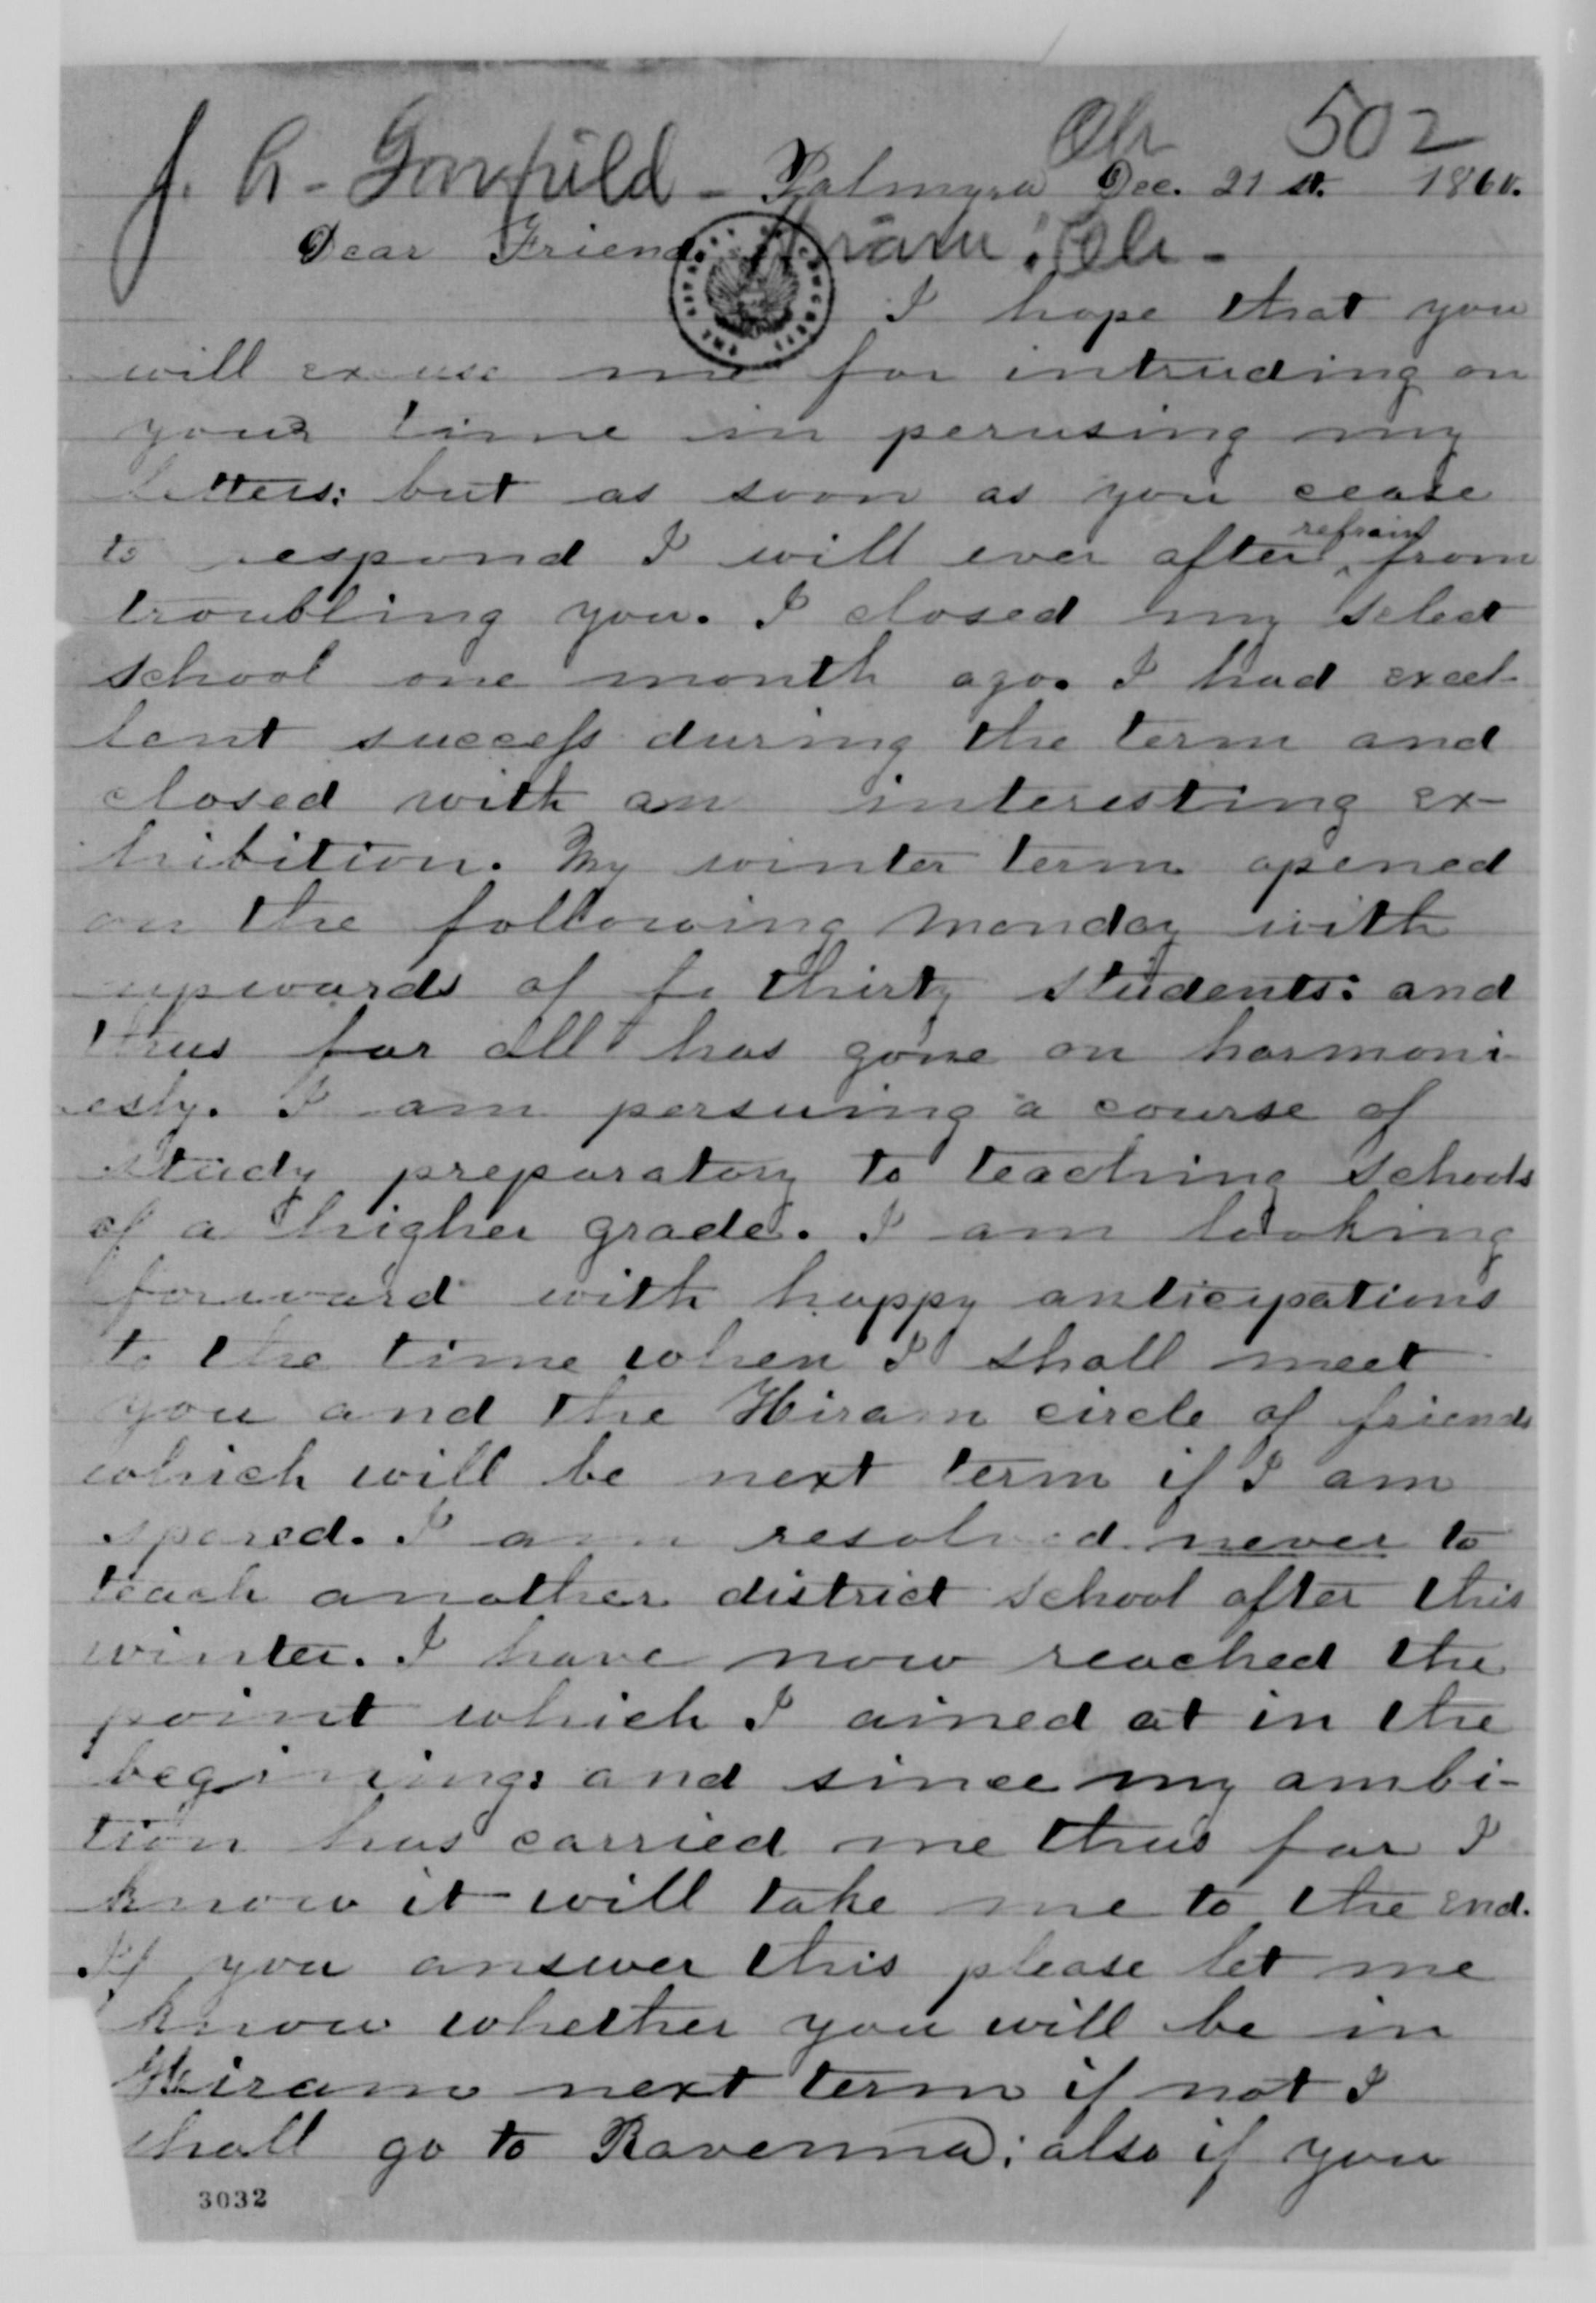 Oh 502
J. A. Garfield - Palmyra Dec. 21 st. 1860.
Dear Friend Hiram: Oh -
I hope that you
will excuse me for intruding on
your time in perusing my
letters: but as soon as you cease
to respond I will ever after refrain from
troubling you. I closed my select
school one month ago. I had excel-
lent success during the term and
closed with an interesting ex-
hibition. My winter term opened
on the following Monday with
upwards of fo thirty students: and
thus far all has gone on harmoni-
esly. I am persuing a course of
study preparatory to teaching schools
of a higher grade. I am looking
forward with happy anticipations
to the time when I shall meet
you and the Hiram circle of friends
which will be next term if I am
spared. I am resolved never to
teach another district school after this
winter. I have now reached the
point which I aimed at in the
begining: and since my ambi-
tion has carried me thus far I
know it will take me to the end.
If you answer this please let me
know whether you will be in
Hiram next term if not I
shall go to Ravenna; also if you
3032